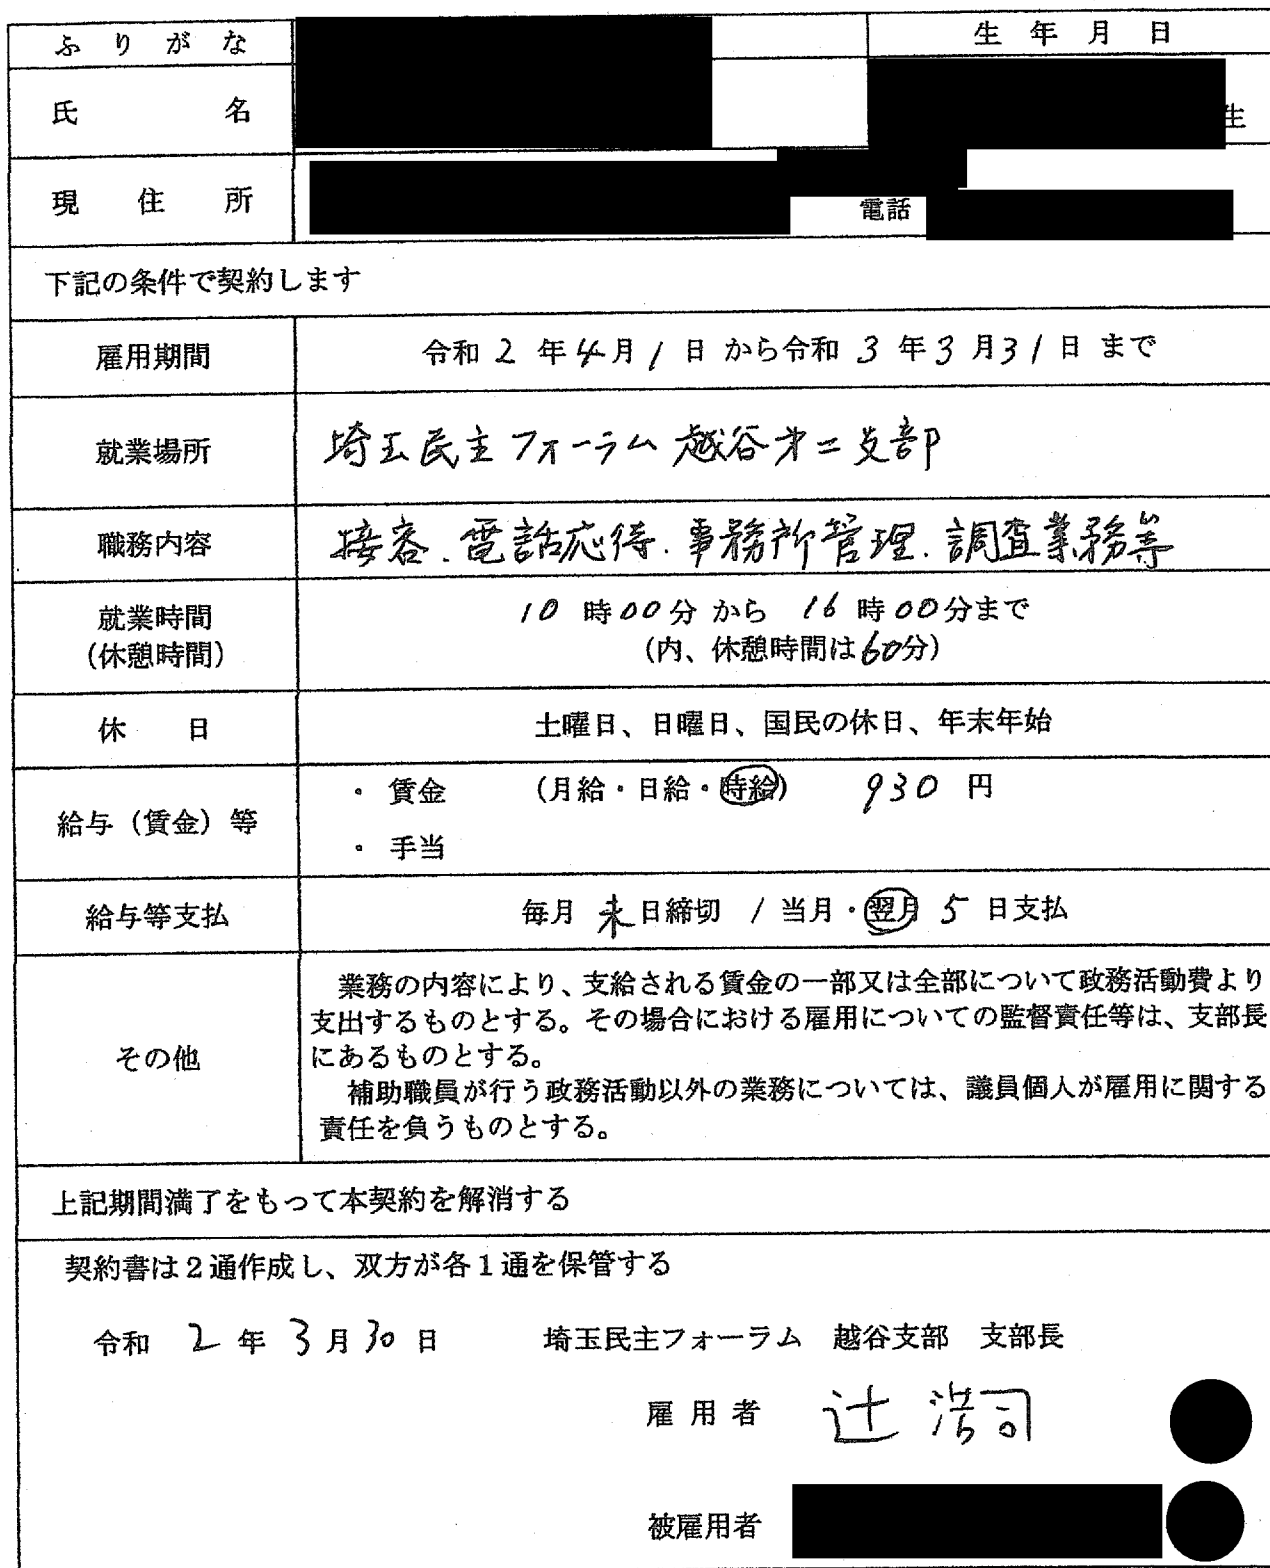 ふりがな
生年月日
氏名
生
現住所
電話
下記の条件で契約します
雇用期間
令和 2 年 4 月 1 日 から令和 3 年 3 月 31 日 まで
就業場所
埼玉民主フォーラム 越谷才二支部
職務内容
接客、電話応待、事務所管理、調査業務等
就業時間
(休憩時間)
10 時 00分 から 16 時 00分まで
(内、休憩時間は60分)
休日
土曜日、日曜日、国民の休日、年末年始
給与(賃金)等
・ 賃金 (月給・日給・時給) 930 円
・ 手当
給与等支払
毎月 末日締切 / 当月・翌月 5 日支払
その他
業務の内容により、支給される賃金の一部又は全部について政務活動費より
支出するものとする。その場合における雇用についての監督責任等は、支部長
にあるものとする。
補助職員が行う政務活動以外の業務については、議員個人が雇用に関する
責任を負うものとする。
上記期間満了をもって本契約を解消する
契約書は2通作成し、双方が各1通を保管する
令和 2 年 3 月 30 日 埼玉民主フォーラム 越谷支部 支部長
雇用者 辻 浩司
被雇用者